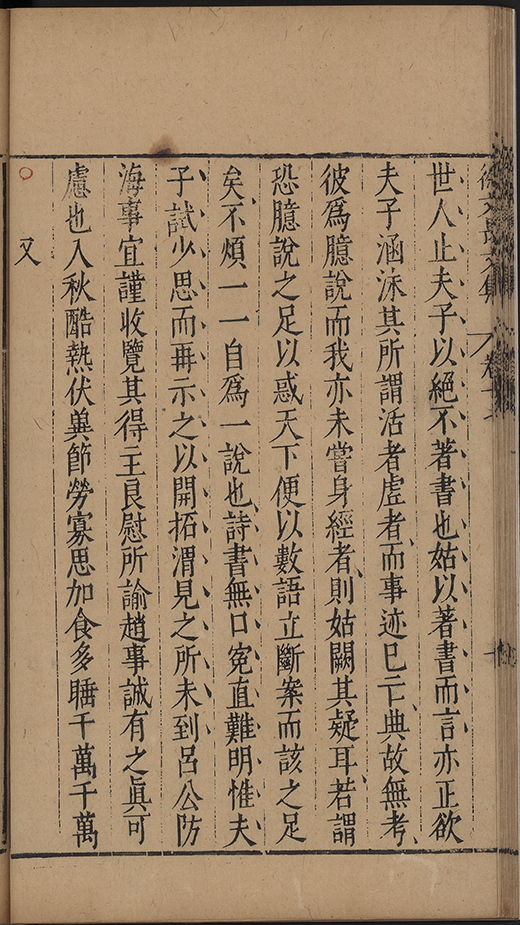 世人止夫子以絕不著書也姑以著書而言亦正欲
夫子涵泳其所謂活者虛者而事迹已亡典故無考
彼爲臆說而我亦未嘗身經者則姑闕其疑耳若謂
恐臆說之足以惑天下便以數語立斷案而該之足
矣不煩一一自爲一說也詩書無口寃直難明惟夫
子試少思而再示之以開拓渭見之所未到呂公防
海事宜謹收覽其得二王良慰所諭趙事誠有之眞可
慮也入秋酷熱伏兾節勞寡思加食多睡千萬千萬
又